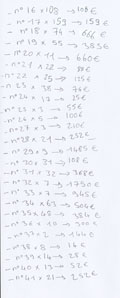 - n° 16 x 109 → 109 €
- n° 17 x 159 → 159 €
- n° 18 x 74 → 666 €
- n° 19 x 55 → 385 €
- n° 20 x 11 → 660 €
- n° 21 x 22 →
- n° 22 x 25 → 125 €
- n° 23 x 38 → 76 €
- n° 24 x 13 →
- n° 25 x 5 → 55 €
- n° 26 x 5 → 100 €
- n° 27 x 3 → 210 €
- n° 28 x 21 → 252 €
- n° 29 x 9 → 1485 €
- n° 30 x 31 → 108 €
- n° 31 x 32 → 368 €
- n° 32 x 7 → 1750 €
- n° 33 x 7 → 945 €
- n° 34 x 63 → 504 €
- n° 35 x 48 → 384 €
- n° 36 x 10 → 300 €
- n° 37 x 2 →
- n° 38 x 8 → 16 €
- n° 39 x 14 → 28 €
- n° 40 x 13 → 52 €
- n° 41 x 21 → 252 €